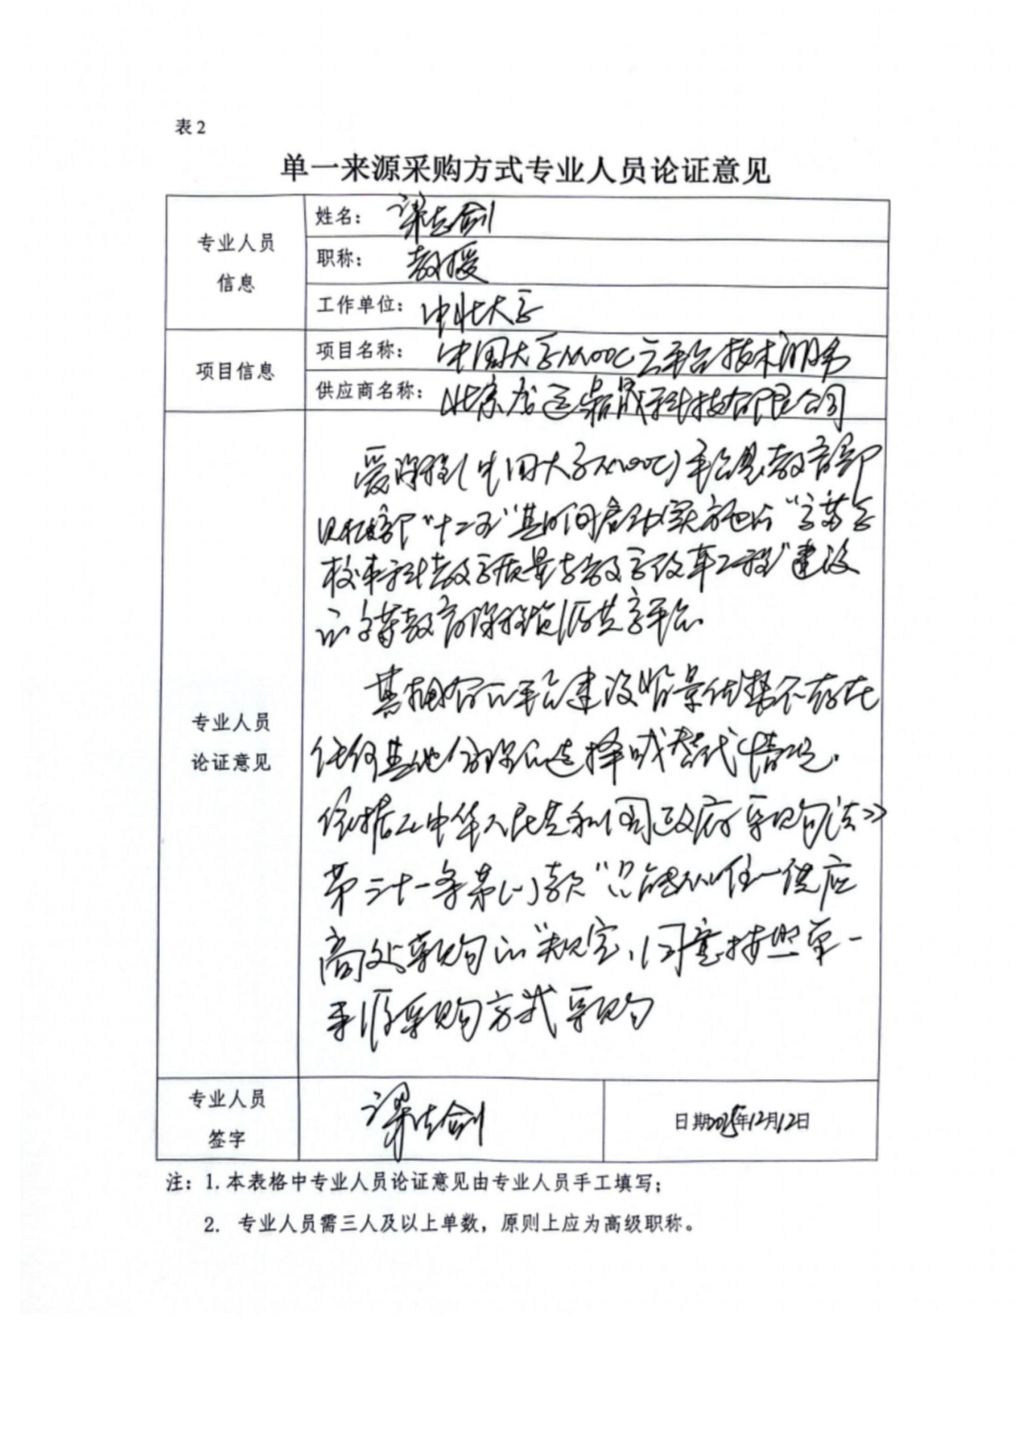 表2
单一来源采购方式专业人员论证意见
专业人员
信息
姓名：梁志剑
职称：教授
工作单位：中北大学
项目信息
项目名称：中国大学MOOC云平台技术服务
供应商名称：北京 科技有限公司
专业人员
论证意见
爱课程(中国大学MOOC)平台是教育部
财政部"十二五"期间启动实施的"高等学
校本科教学质量与教学改革工程"建设
的高等教育课程资源共享平台。
其拥有的平台建设背景优势不存在
任何其他合理的选择或替代情况。
依据《中华人民共和国政府采购法》
第三十一条第(一)款"只能从唯一供应
商处采购的"规定，同意按照单一
来源采购方式采购
专业人员
签字
梁志剑
日期2025年12月12日
注：1.本表格中专业人员论证意见由专业人员手工填写；
2. 专业人员需三人及以上单数，原则上应为高级职称。